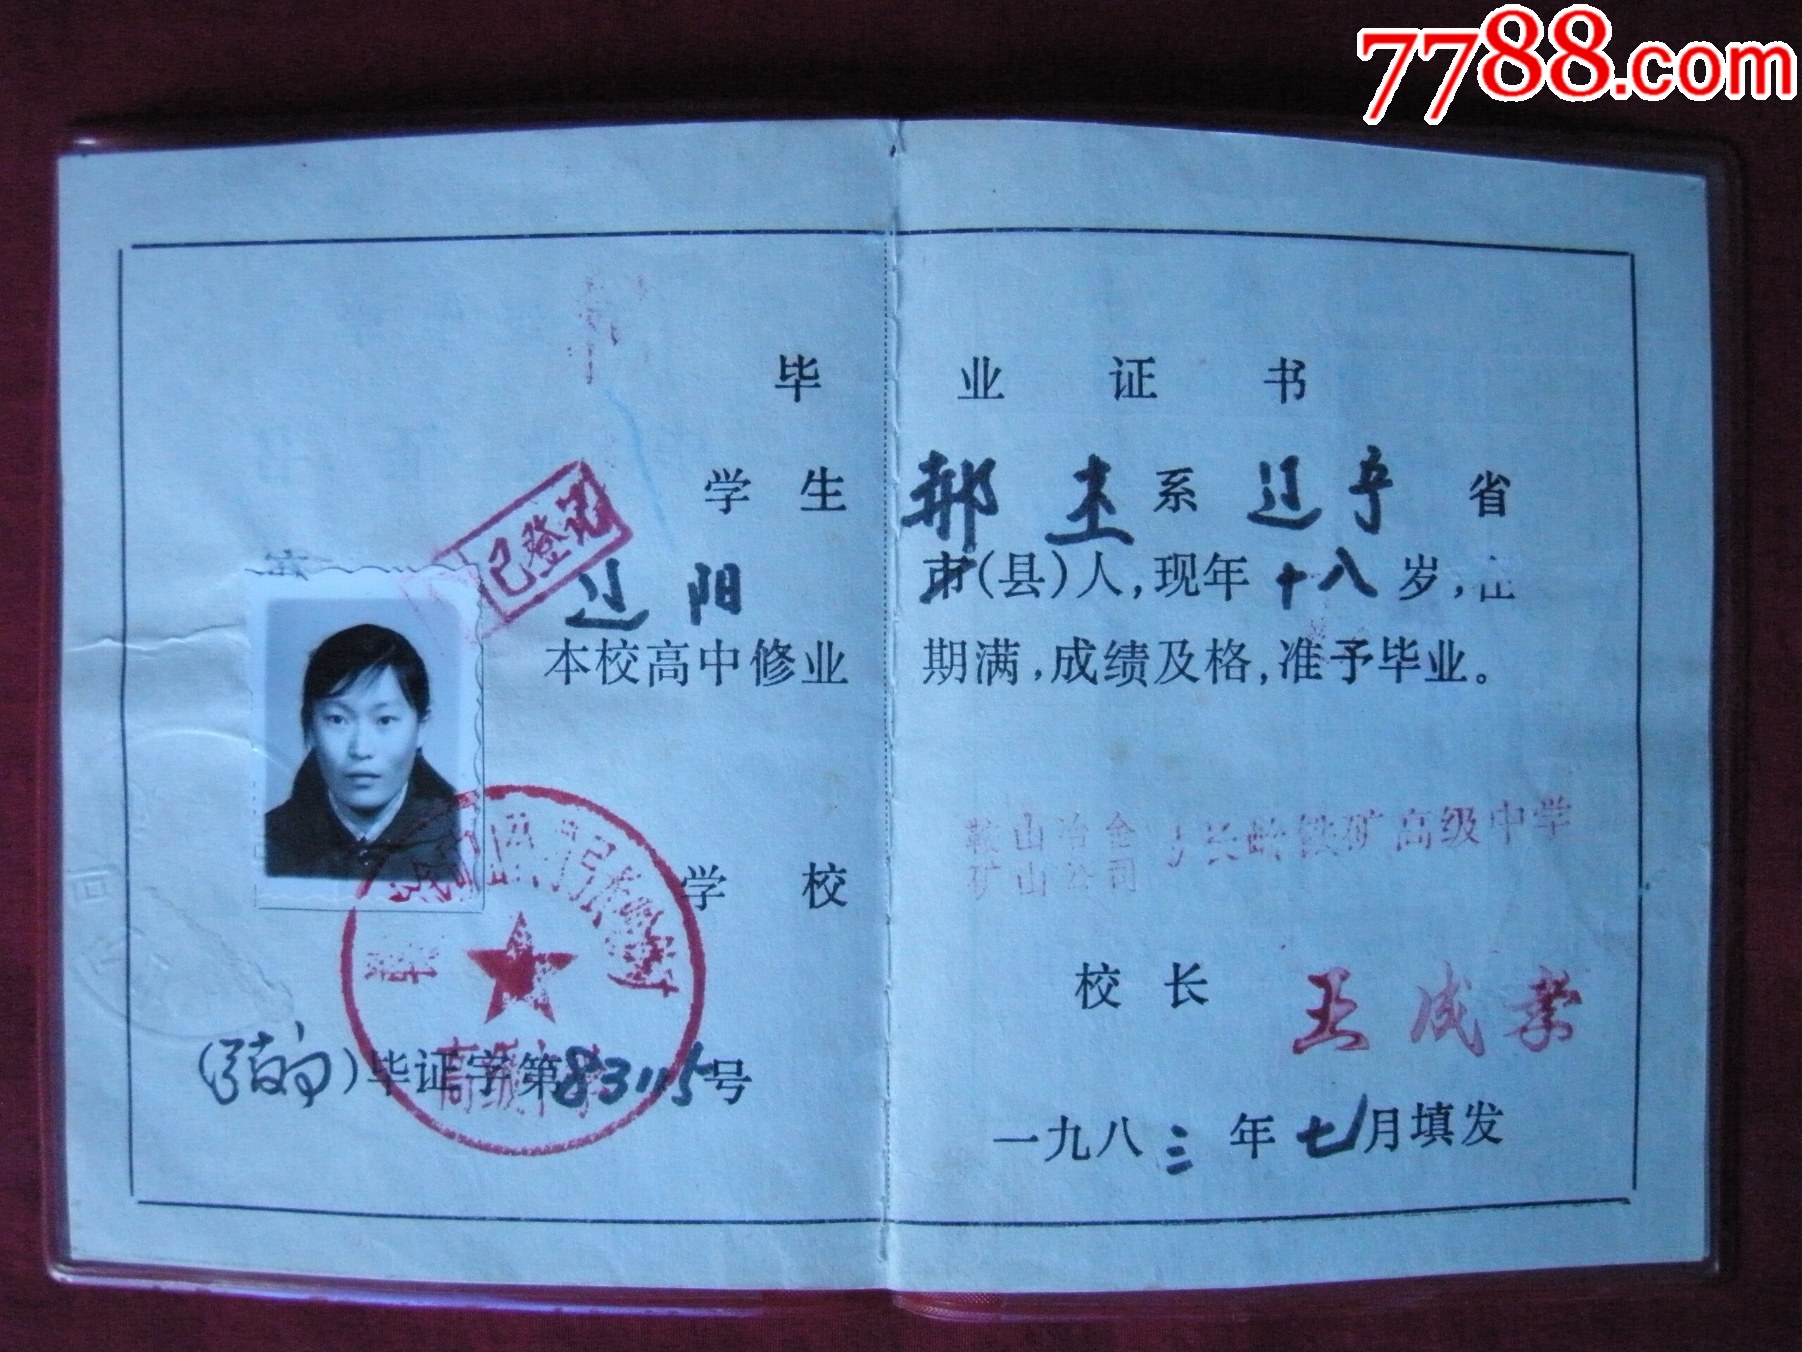 7788.com
毕业证书
学生 郝杰 系 辽宁 省
已登记
辽阳 市(县)人,现年 十八 岁,在
本校高中修业 期满,成绩及格,准予毕业。
鞍山冶金
矿山公司
弓长岭铁矿高级中学
学校
校长 王成孝
高级中学
毕证字第 83115 号
一九八三年七月填发